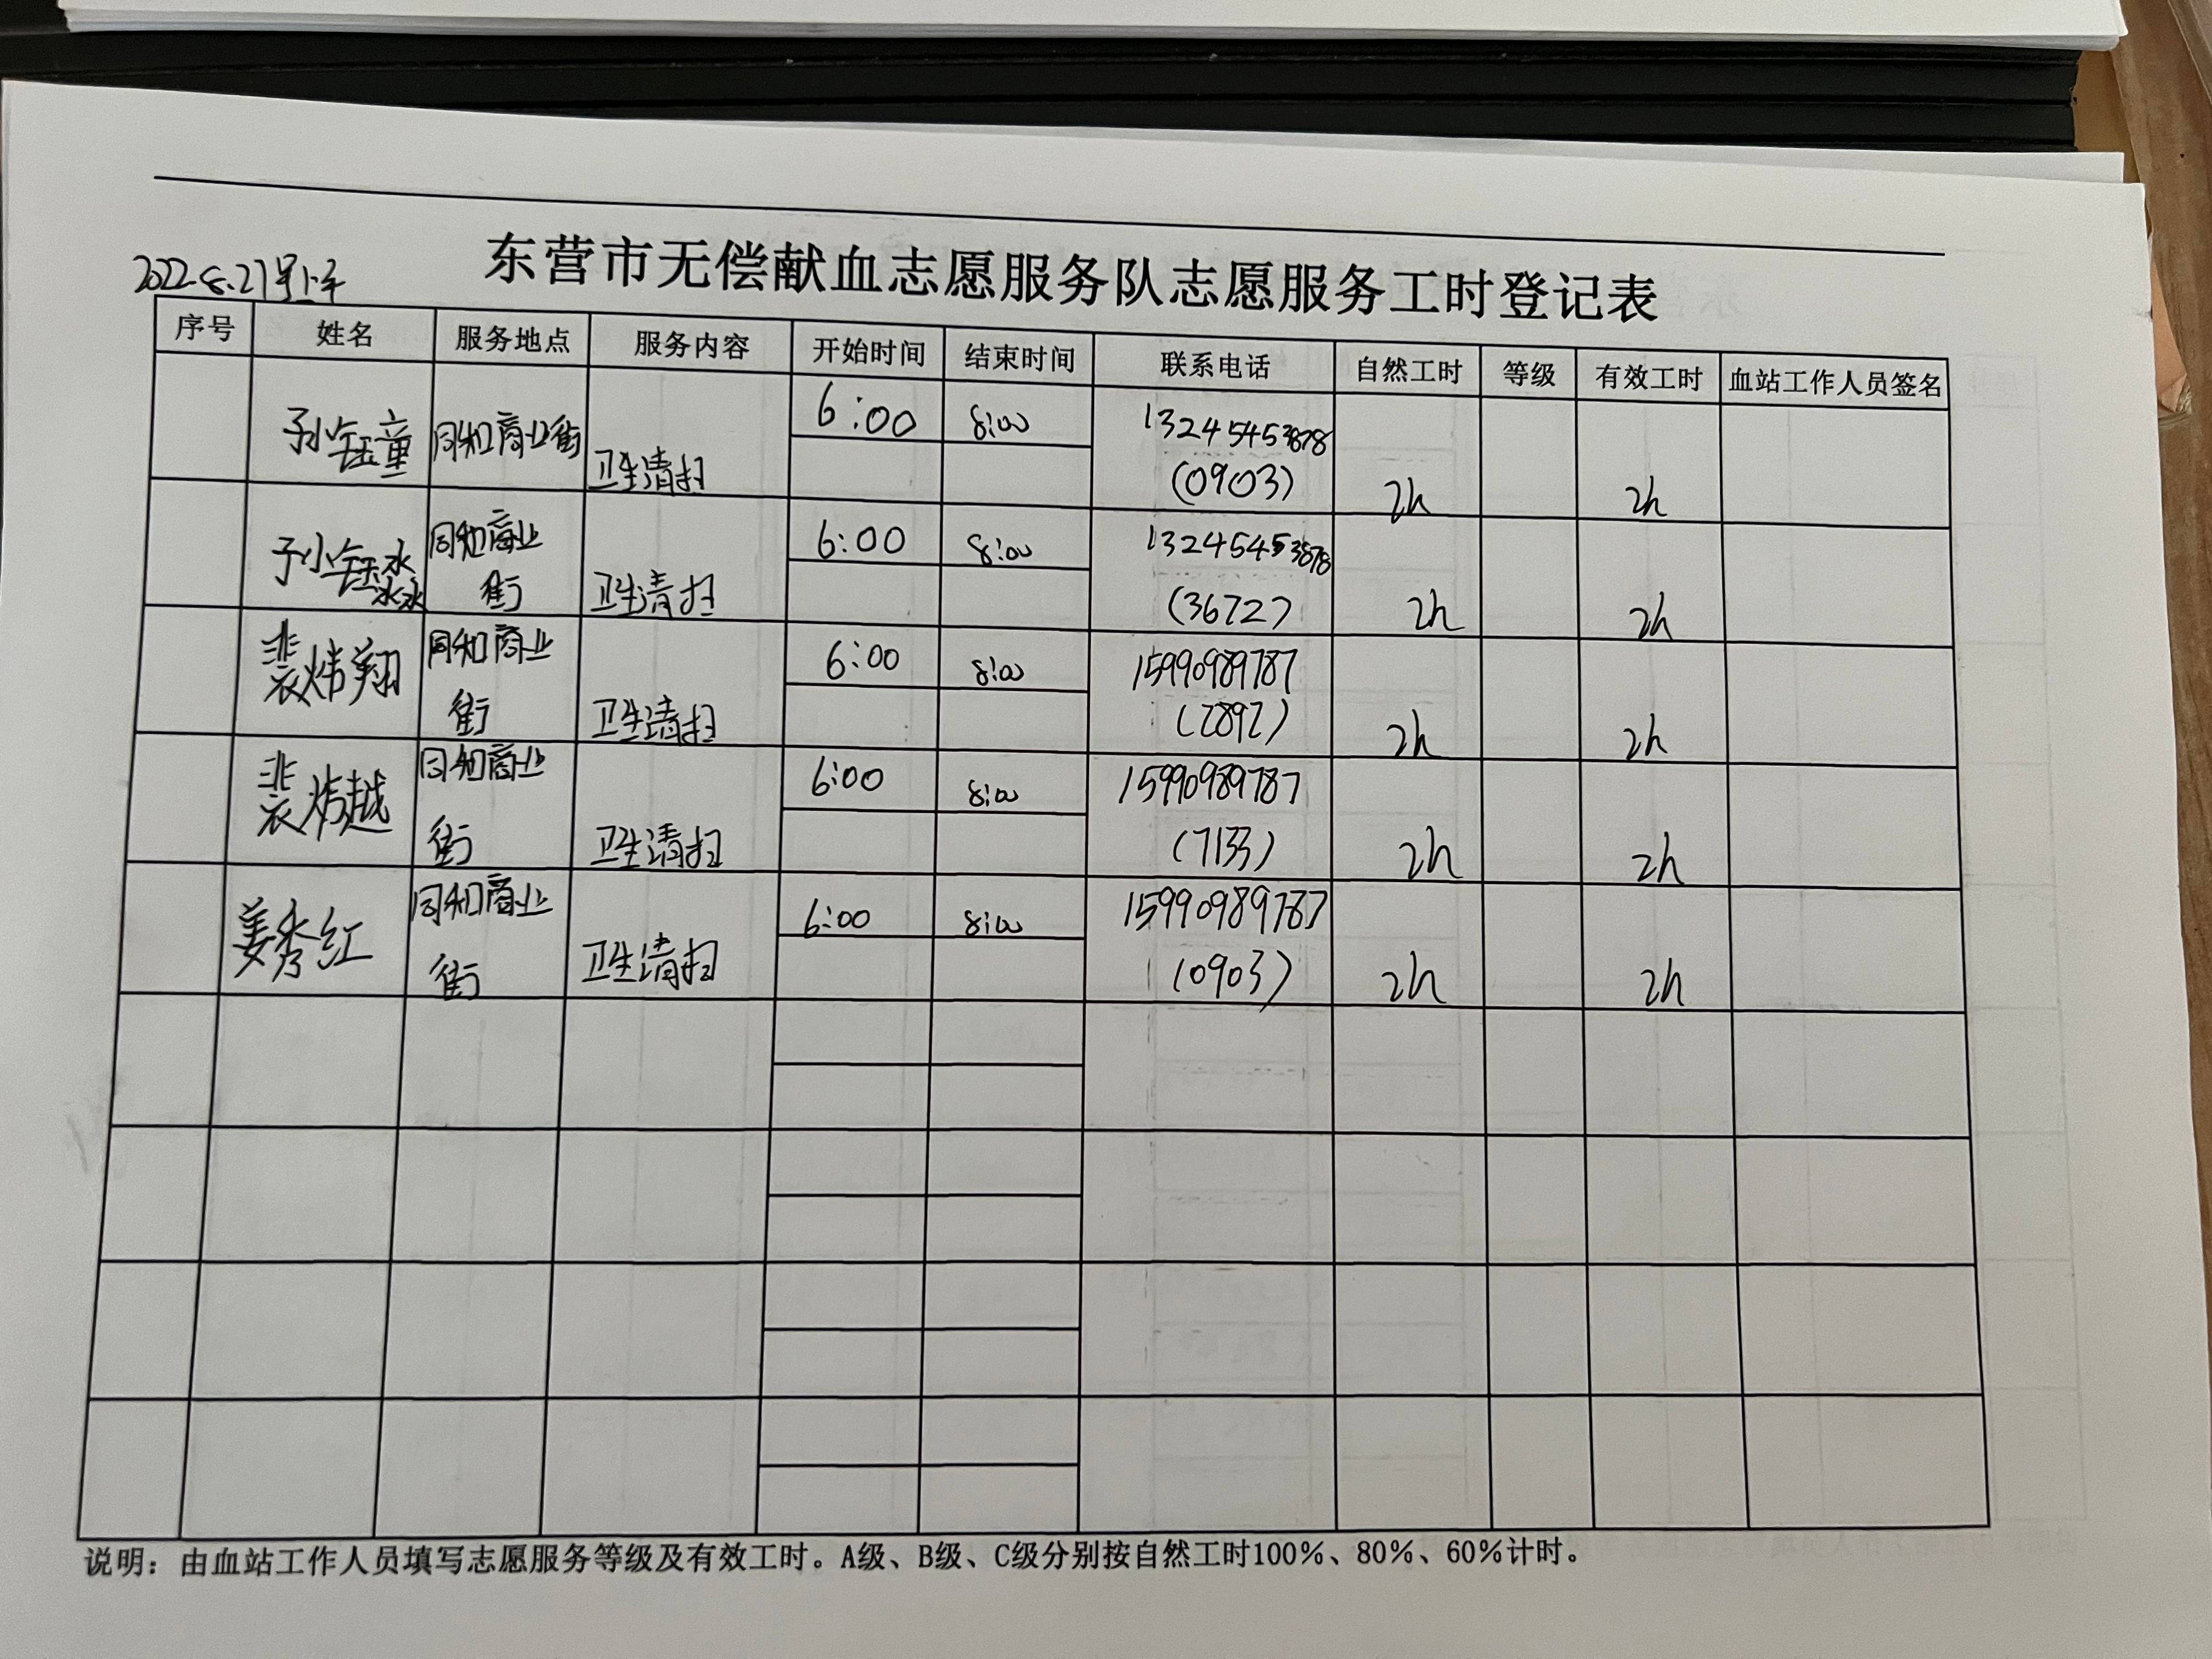 东营市无偿献血志愿服务队志愿服务工时登记表
2022.8.27号上午
序号 姓名 服务地点 服务内容 开始时间 结束时间 联系电话 自然工时 等级 有效工时 血站工作人员签名
孙钰童 同和商业街 卫生清扫 6:00 8:00 13245453878
(0903) 2h 2h
孙钰淼 同和商业 6:00 8:00 13245453878
街 卫生清扫 (3672) 2h 2h
裴炜翔 同和商业 6:00 8:00 15990989787
街 卫生清扫 (2892) 2h 2h
裴炜越 同和商业 6:00 8:00 15990989787
街 卫生清扫 (7133) 2h 2h
姜秀红 同和商业 6:00 8:00 15990989787
街 卫生清扫 (0903) 2h 2h
说明：由血站工作人员填写志愿服务等级及有效工时。A级、B级、C级分别按自然工时100%、80%、60%计时。